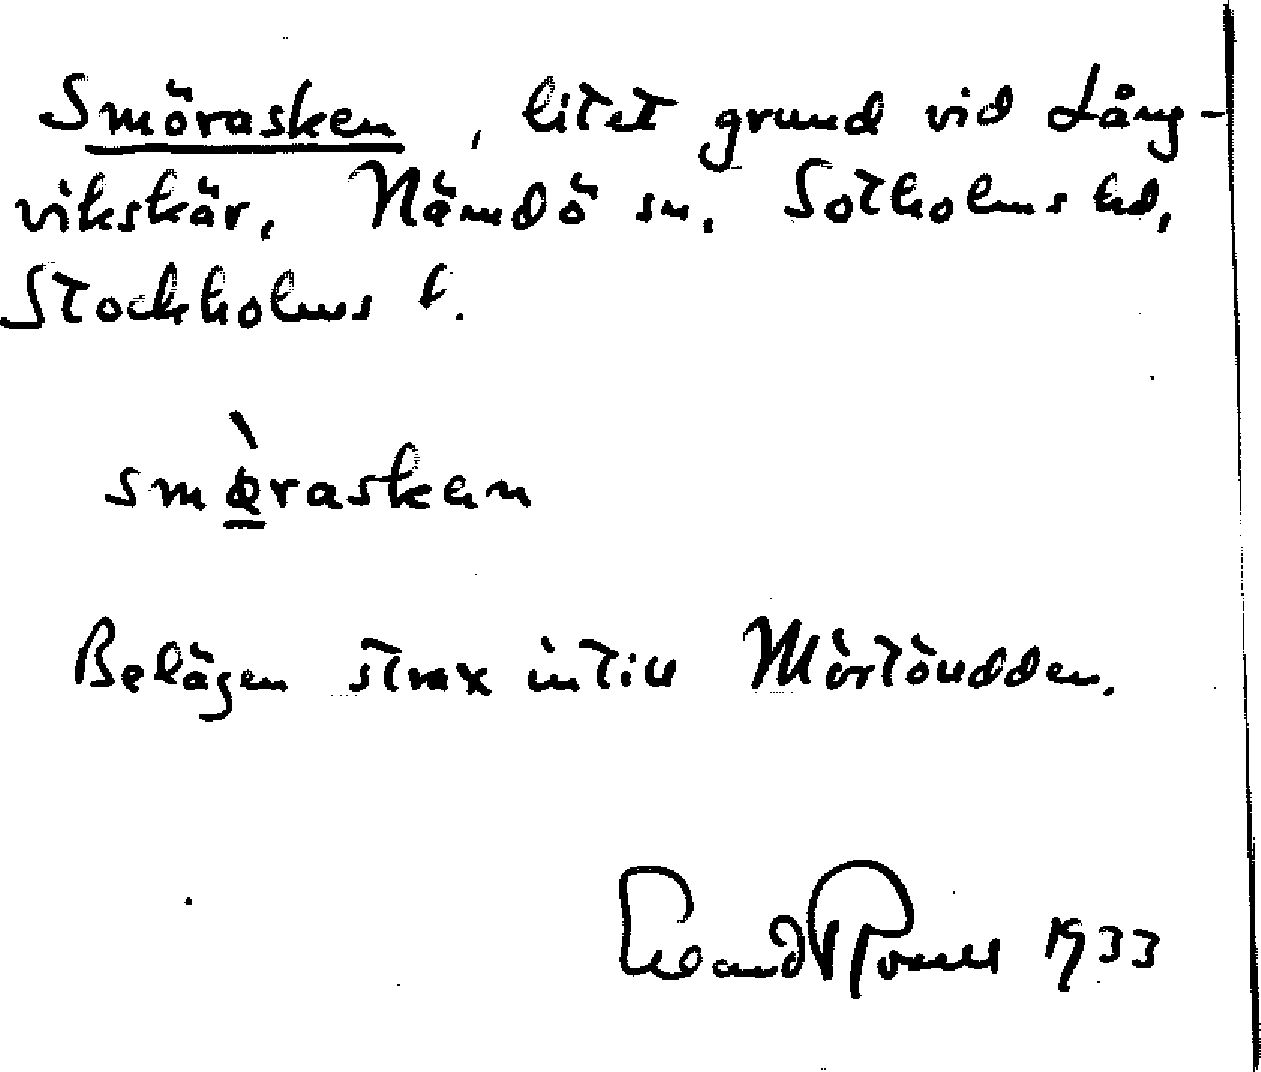 Smörasken, litet grund vid Lång-
vikskär, Nämdö sn. Sotholms hd,
Stockholms l.
smø̀rasken
Belägen strax intill Mörtöudden.
1933